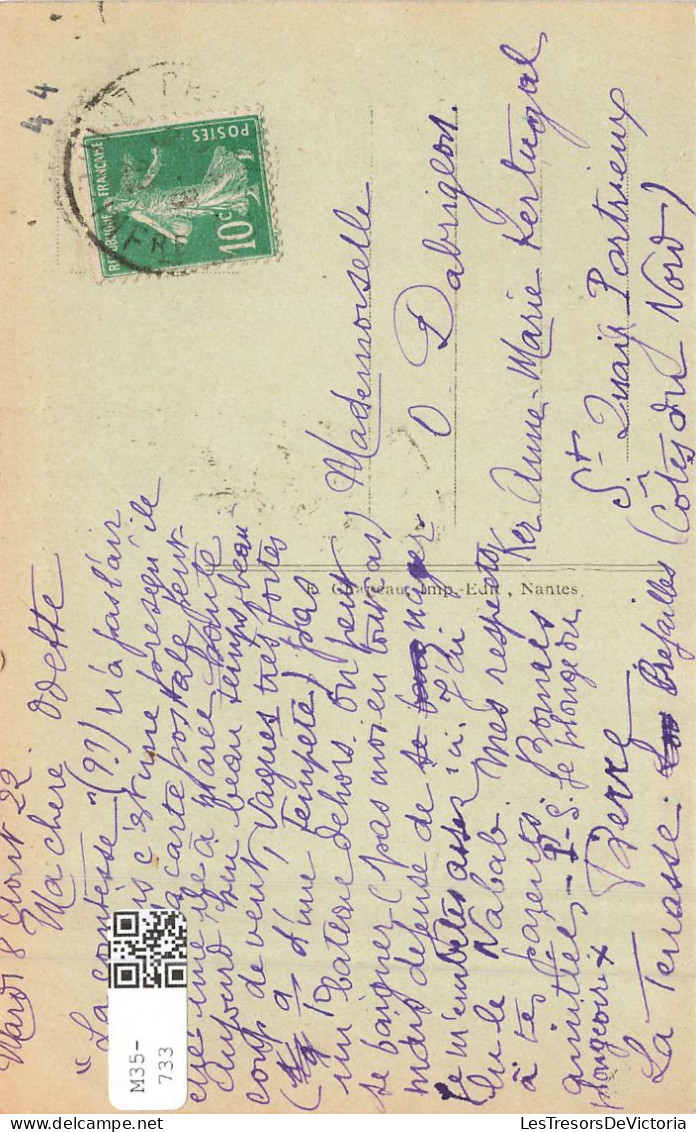 44
REPUBLIQUE FRANÇAISE
POSTES
10c
Mardi 8 Aout 22.
Ma chère Odette
"La comtesse" (??) n'a pas l'air
is c'est une presqu'île
la carte postale
une île à marée haute
Aujourd'hui beau temps beau-
coup de vent, vagues très fortes
d'une tempête) pas
un bateau dehors. On peut
se baigner (pas moi en tout cas)
mais défense de nager.
Je m'embête assez ici. J'ai
lu le Nabab. Mes respects
à tes parents. Bonnes
amitiés – P-S. Je plonge du
plongeoir x
Pierre
La Terrasse. Prefailles
Mademoiselle
O Dabrigeon.
Ker Anne-Marie Kertugal
St Quay Portrieux
(Côtes du Nord)
Chapeau, Imp.-Edit, Nantes
M35-
733
LesTresorsDeVictoria